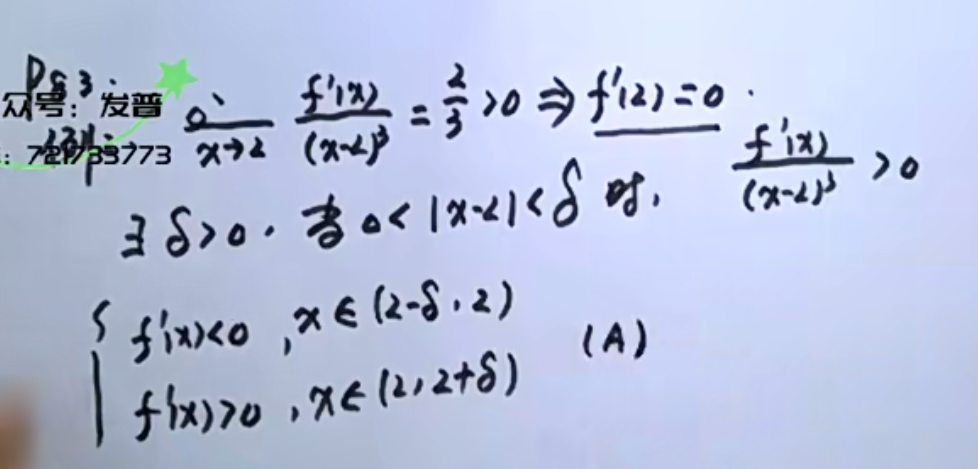 P83.
众号：发普
: 721733773
x→2 f'(x)/(x-2)³ = 2/3 >0 ⇒ f'(2)=0.
∃ δ>0. 当 0<|x-2|<δ 时, f'(x)/(x-2)³ >0
{ f'(x)<0 , x∈(2-δ, 2)
f'(x)>0 , x∈(2, 2+δ)
(A)